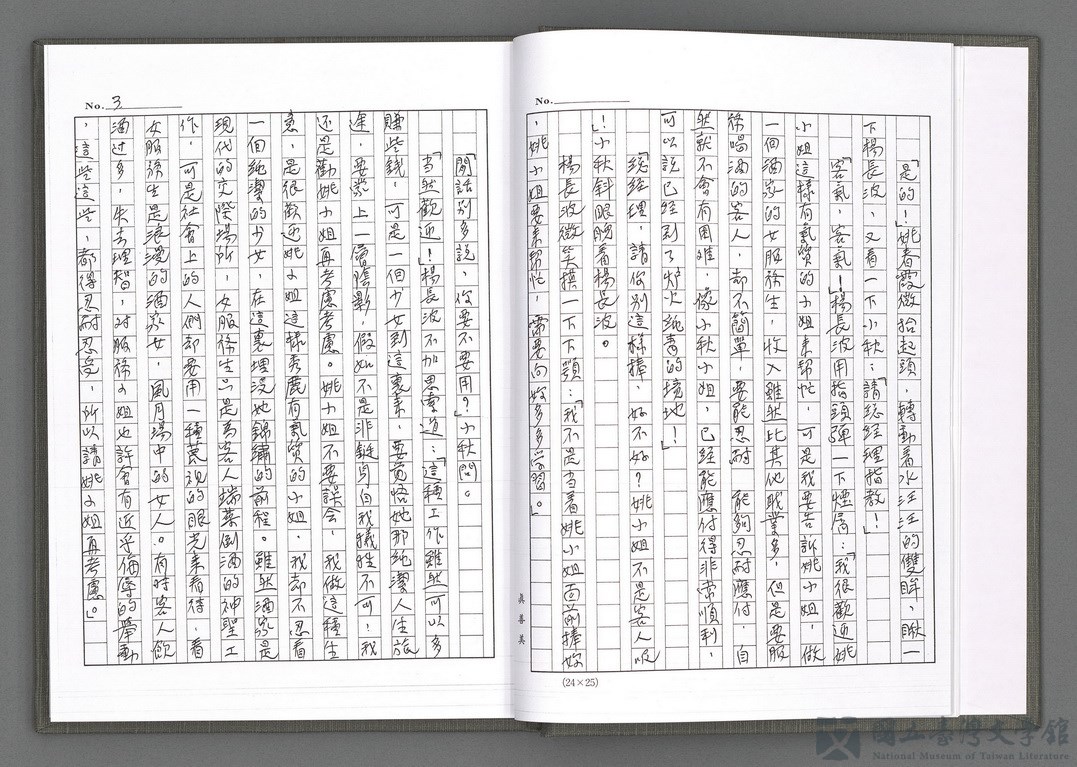 No.
「是的!」姚春霞微抬起頭,轉動着水汪汪的雙眸,瞅一
下楊長波,又看一下小秋:「請総経理指教!」
「客氣,客氣!」楊長波用指頭弹一下煙屑:「我很歡迎姚
小姐這樣有氣質的小姐來幫忙,可是我要告訴姚小姐,做
一個酒家的女服務生,收入雖然比其他職業多,但是要服
務喝酒的客人,却不簡單,要能忍耐 能夠忍耐應付,自
然就不會有困难,像小秋小姐,已經能應付得非常順利,
可以說已经到了炉火純青的境地!」
「総经理,請你别這樣捧,好不好?姚小姐不是客人呢
!」小秋斜眼睨着楊長波。
楊長波微笑摸一下下顎:「我不是当着姚小姐面前捧妳
,姚小姐要來幫忙,需要向妳多多学習。」
真善美
(24×25)
No. 3
「閒話别多說,你要不要用?」小秋問。
「当然歡迎!」楊長波不加思索道:「這種工作雖然可以多
賺些錢,可是一個少女到這裏來,要覚悟她那純潔人生旅
途,要蒙上一層陰影,假如不是非賣身自我犧牲不可,我
还是勸姚小姐再考慮考慮。姚小姐不要誤会,我做這種生
意,是很歡迎姚小姐這樣秀麗有氣質的小姐,我却不忍看
一個純潔的少女,在這裏埋没她錦繡的前程。雖然酒家是
現代的交際場所,女服務生只是為客人端菜倒酒的神聖工
作,可是社會上的人們却要用一種蔑視的眼光來看待,看
女服務生是浪漫的酒家女,風月場中的女人。有時客人飲
酒过多,失去理智,对服務小姐也許會有近乎侮辱的举動
,這些這些,都得忍耐忍受,所以請姚小姐再考慮。」
國立臺灣文學館
National Museum of Taiwan Literature